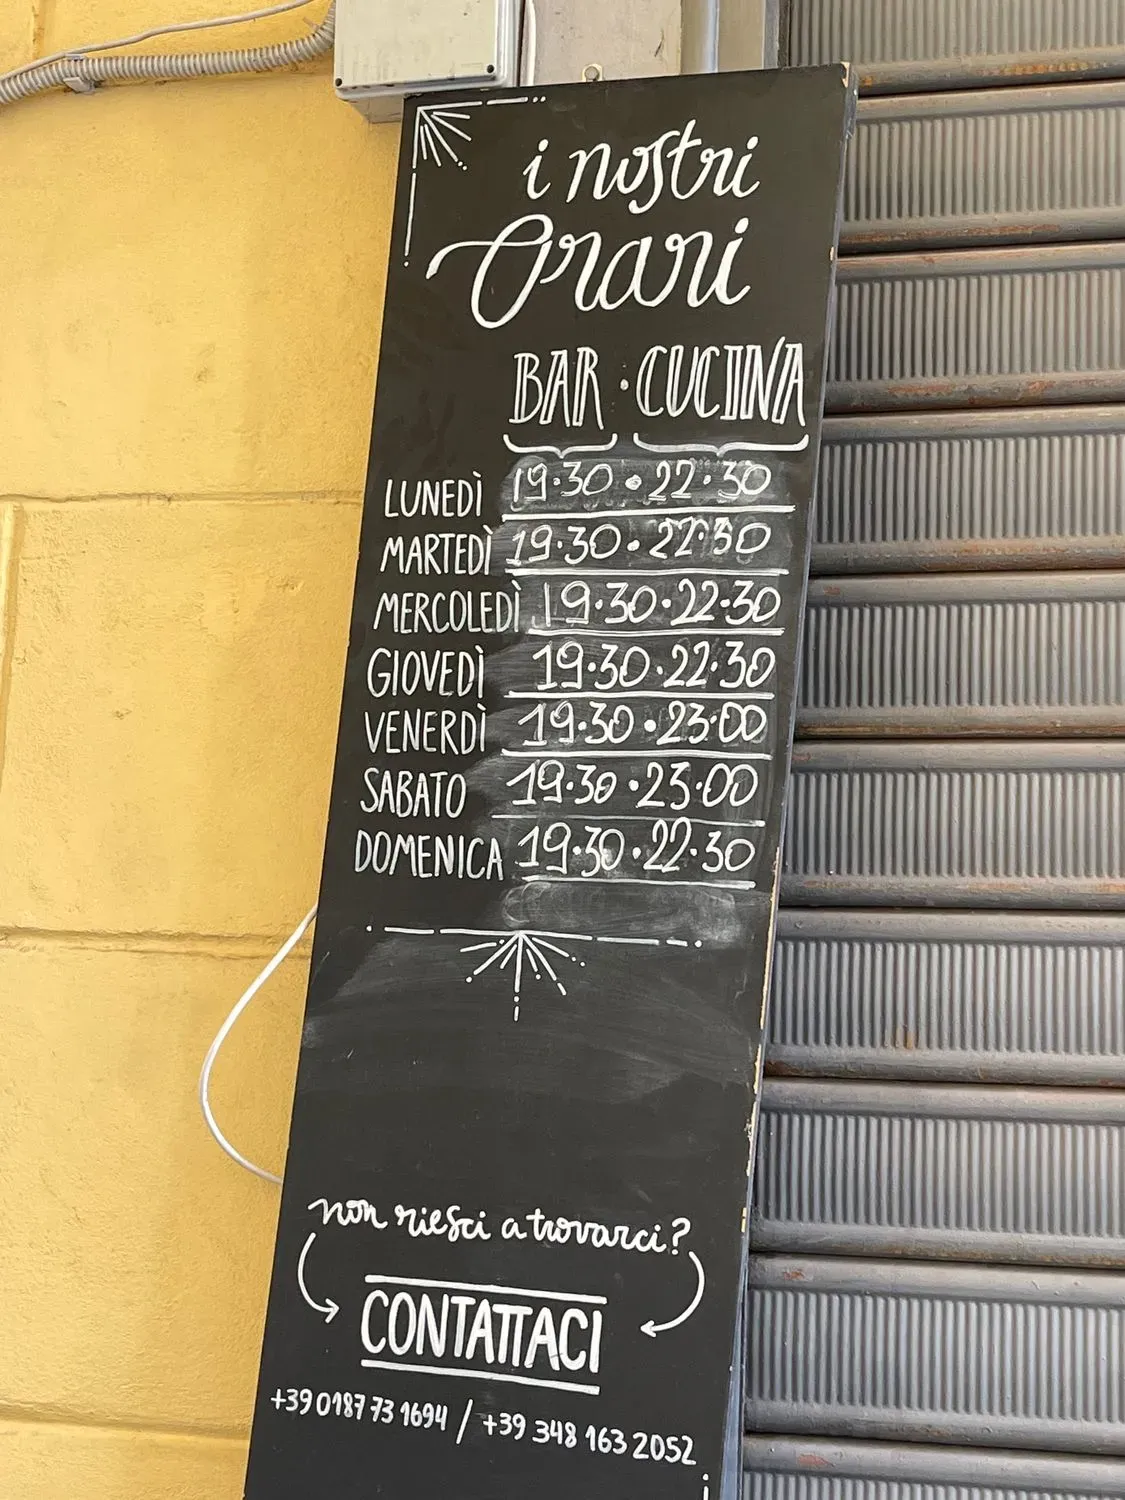 i nostri
Orari
BAR · CUCINA
LUNEDÌ 19·30 · 22·30
MARTEDÌ 19·30 · 22·30
MERCOLEDÌ 19·30 · 22·30
GIOVEDÌ 19·30 · 22·30
VENERDÌ 19·30 · 23·00
SABATO 19·30 · 23·00
DOMENICA 19·30 · 22·30
non riesci a trovarci?
CONTATTACI
+39 0187 73 1694 / +39 348 163 2052